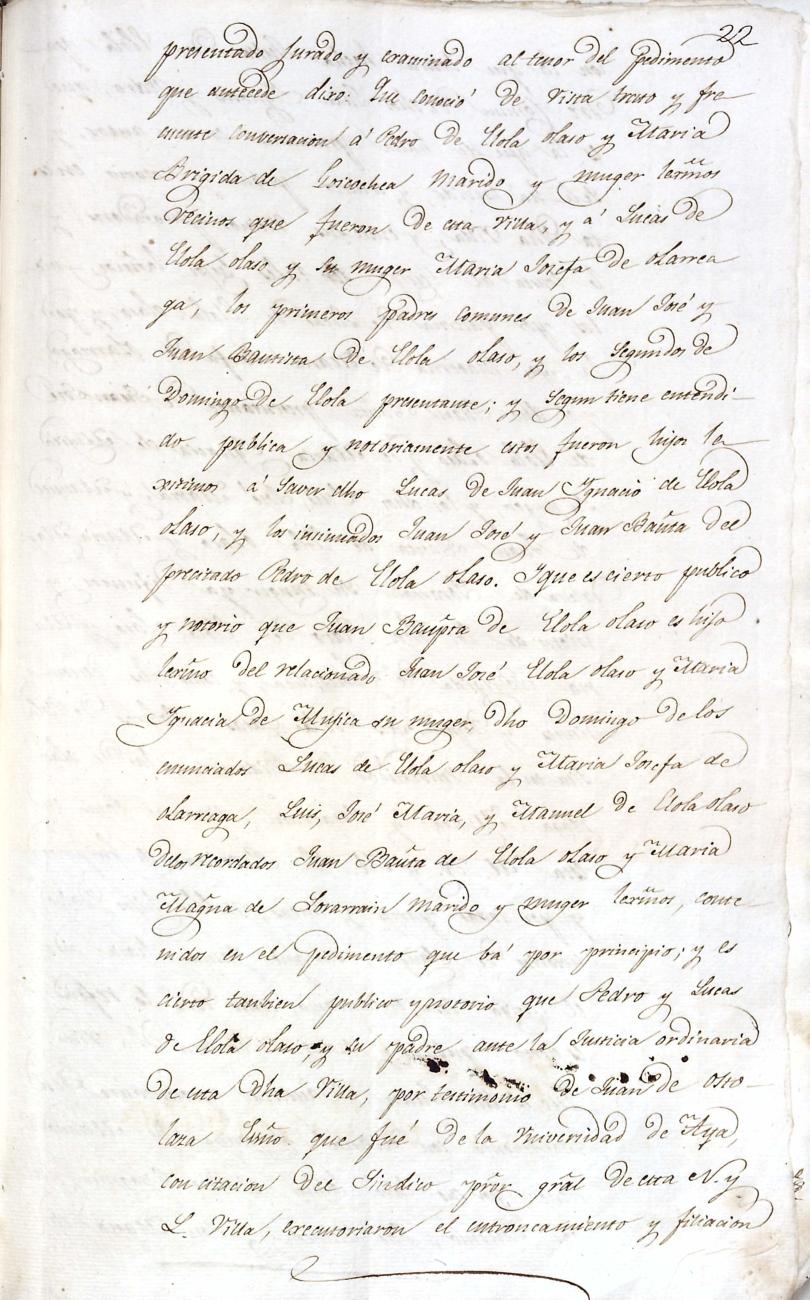 22
presentado jurado y examinado al tenor del pedimento
que antecede dixo: Que conoció de vista trato y fre
cuente conversacion á Pedro de Elola olaso y Maria
Brigida de Goicochea Marido y muger lexmos
vecinos que fueron de esta villa, y á Lucas de
Elola olaso y su muger Maria Josefa de olarrea
ga, los primeros padres comunes de Juan José y
Juan Bautista de Elola olaso, y los segundos de
Domingo de Elola presentante; y segun tiene entendi-
do publica y notoriamente estos fueron hijos le
xitimos á saver dho Lucas de Juan Ignacio de Elola
olaso, y los insinuados Juan José y Juan Bauta del
precitado Pedro de Elola olaso. Y que es cierto publico
y notorio que Juan Baupta de Elola olaso es hijo
lexmo del relacionado Juan José Elola olaso y Maria
Ignacia de Mujica su muger, dho Domingo de los
enunciados Lucas de Elola olaso y Maria Josefa de
olarreaga, Luis, José Maria, y Manuel de Elola olaso
delos recordados Juan Bauta de Elola olaso y Maria
Magna de Lorarrain marido y muger lexmos, conte
nidos en el pedimento que bá por principio; y es
cierto tambien publico y notorio que Pedro y Lucas
de Elola olaso, y su padre ante la Justicia ordinaria
de esta dha villa, por testimonio de Juan de osto-
laza Esno. que fué de la Universidad de Aya,
con citacion del Sindico pror gral de esta N. y
L. Villa, executoriaron el entroncamiento y filiacion